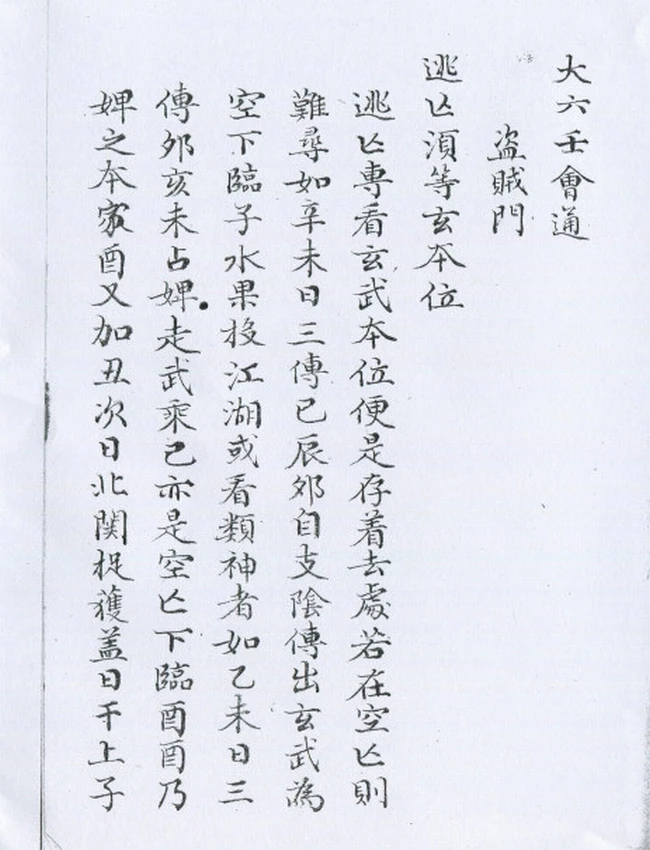 大六壬會通
盗賊門
逃亾湏等玄本位
逃亾專看玄武本位便是存着去處若在空亾則
難尋如辛未日三傳巳辰夘自支陰傳出玄武為
空下臨子水果投江湖或看類神者如乙未日三
傳夘亥未占婢走武乘巳亦是空亾下臨酉酉乃
婢之本家酉又加丑次日北関捉獲盖日干上子